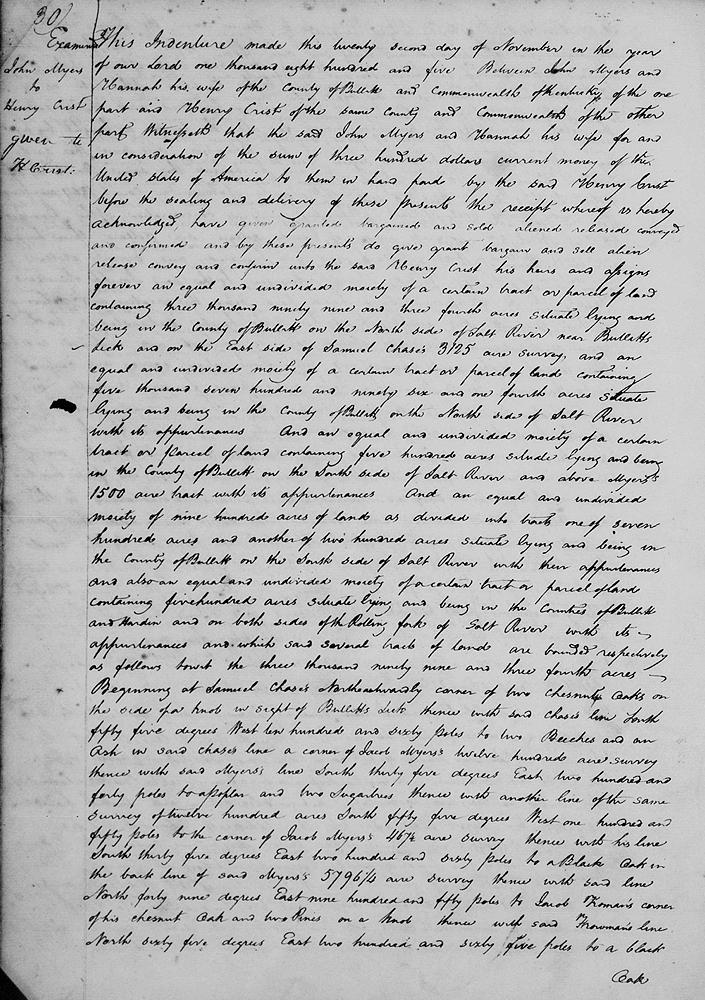 30
Examined
John Myers
to
Henry Crist
given to
H Crist:
This Indenture made this twenty second day of November in the year
of our Lord one thousand eight hundred and five Between John Myers and
Hannah his wife of the County of Bullitt and Commonwealth of Kentucky of the one
part and Henry Crist of the same county and Commonwealth of the other
part Witnesseth that the said John Myers and Hannah his wife for and
in consideration of the sum of three hundred dollars current money of the
United States of America to them in hand paid by the said Henry Crist
before the sealing and delivery of these presents the receipt whereof is hereby
acknowledged, have given granted bargained and sold aliened released conveyed
and confirmed and by these presents do give grant bargain and sell alien
release convey and confirm unto the said Henry Crist his heirs and assigns
forever an equal and undivided moiety of a certain tract or parcel of land
containing three thousand ninety nine and three fourth acres situate lying and
being in the County of Bullitt on the North side of Salt River near Bullitts
Lick and on the East side of Samuel Chase's 3125 acre survey, and an
equal and undivided moiety of a certain tract or parcel of land containing
five thousand seven hundred and ninety six and one fourth acres situate
lying and being in the County of Bullitt on the North side of Salt River
with its appurtenances And an equal and undivided moiety of a certain
tract or parcel of land containing five hundred acres situate lying and being
in the County of Bullitt on the South side of Salt River and above Myers's
1500 acre tract with its appurtenances And an equal and undivided
moiety of nine hundred acres of land as divided into tracts one of seven
hundred acres and another of two hundred acres situate lying and being in
the County of Bullitt on the South side of Salt River with their appurtenances
and also an equal and undivided moiety of a certain tract or parcel of land
containing five hundred acres situate lying and being in the Counties of Bullitt
and Hardin and on both sides of the Rolling fork of Salt River with its
appurtenances and which said several tracts of land are bounded respectively
as follows towit the three thousand ninety nine and three fourth acres
Beginning at Samuel Chase's Northeastwardly corner of two chesnut Oaks on
the side of a knob in sight of Bullitts Lick thence with said chases line South
fifty five degrees West ten hundred and sixty poles to two Beeches and an
Ash in said chases line a corner of Jacob Myers's twelve hundred acre survey
thence with said Myers's line South thirty five degrees East two hundred and
forty poles to a poplar and two Sugartrees thence with another line of the same
survey of twelve hundred acres South fifty five degrees West one hundred and
fifty poles to the corner of Jacob Myers's 467½ acre survey thence with his line
South thirty five degrees East two hundred and sixty poles to a Black Oak in
the back line of said Myers's 5796¼ acre survey thence with said line
North forty nine degrees East nine hundred and fifty poles to Jacob Froman's corner
of his chesnut Oak and two Pines on a knob thence with said Frowmans line
North sixty five degrees East two hundred and sixty five poles to a black
Oak